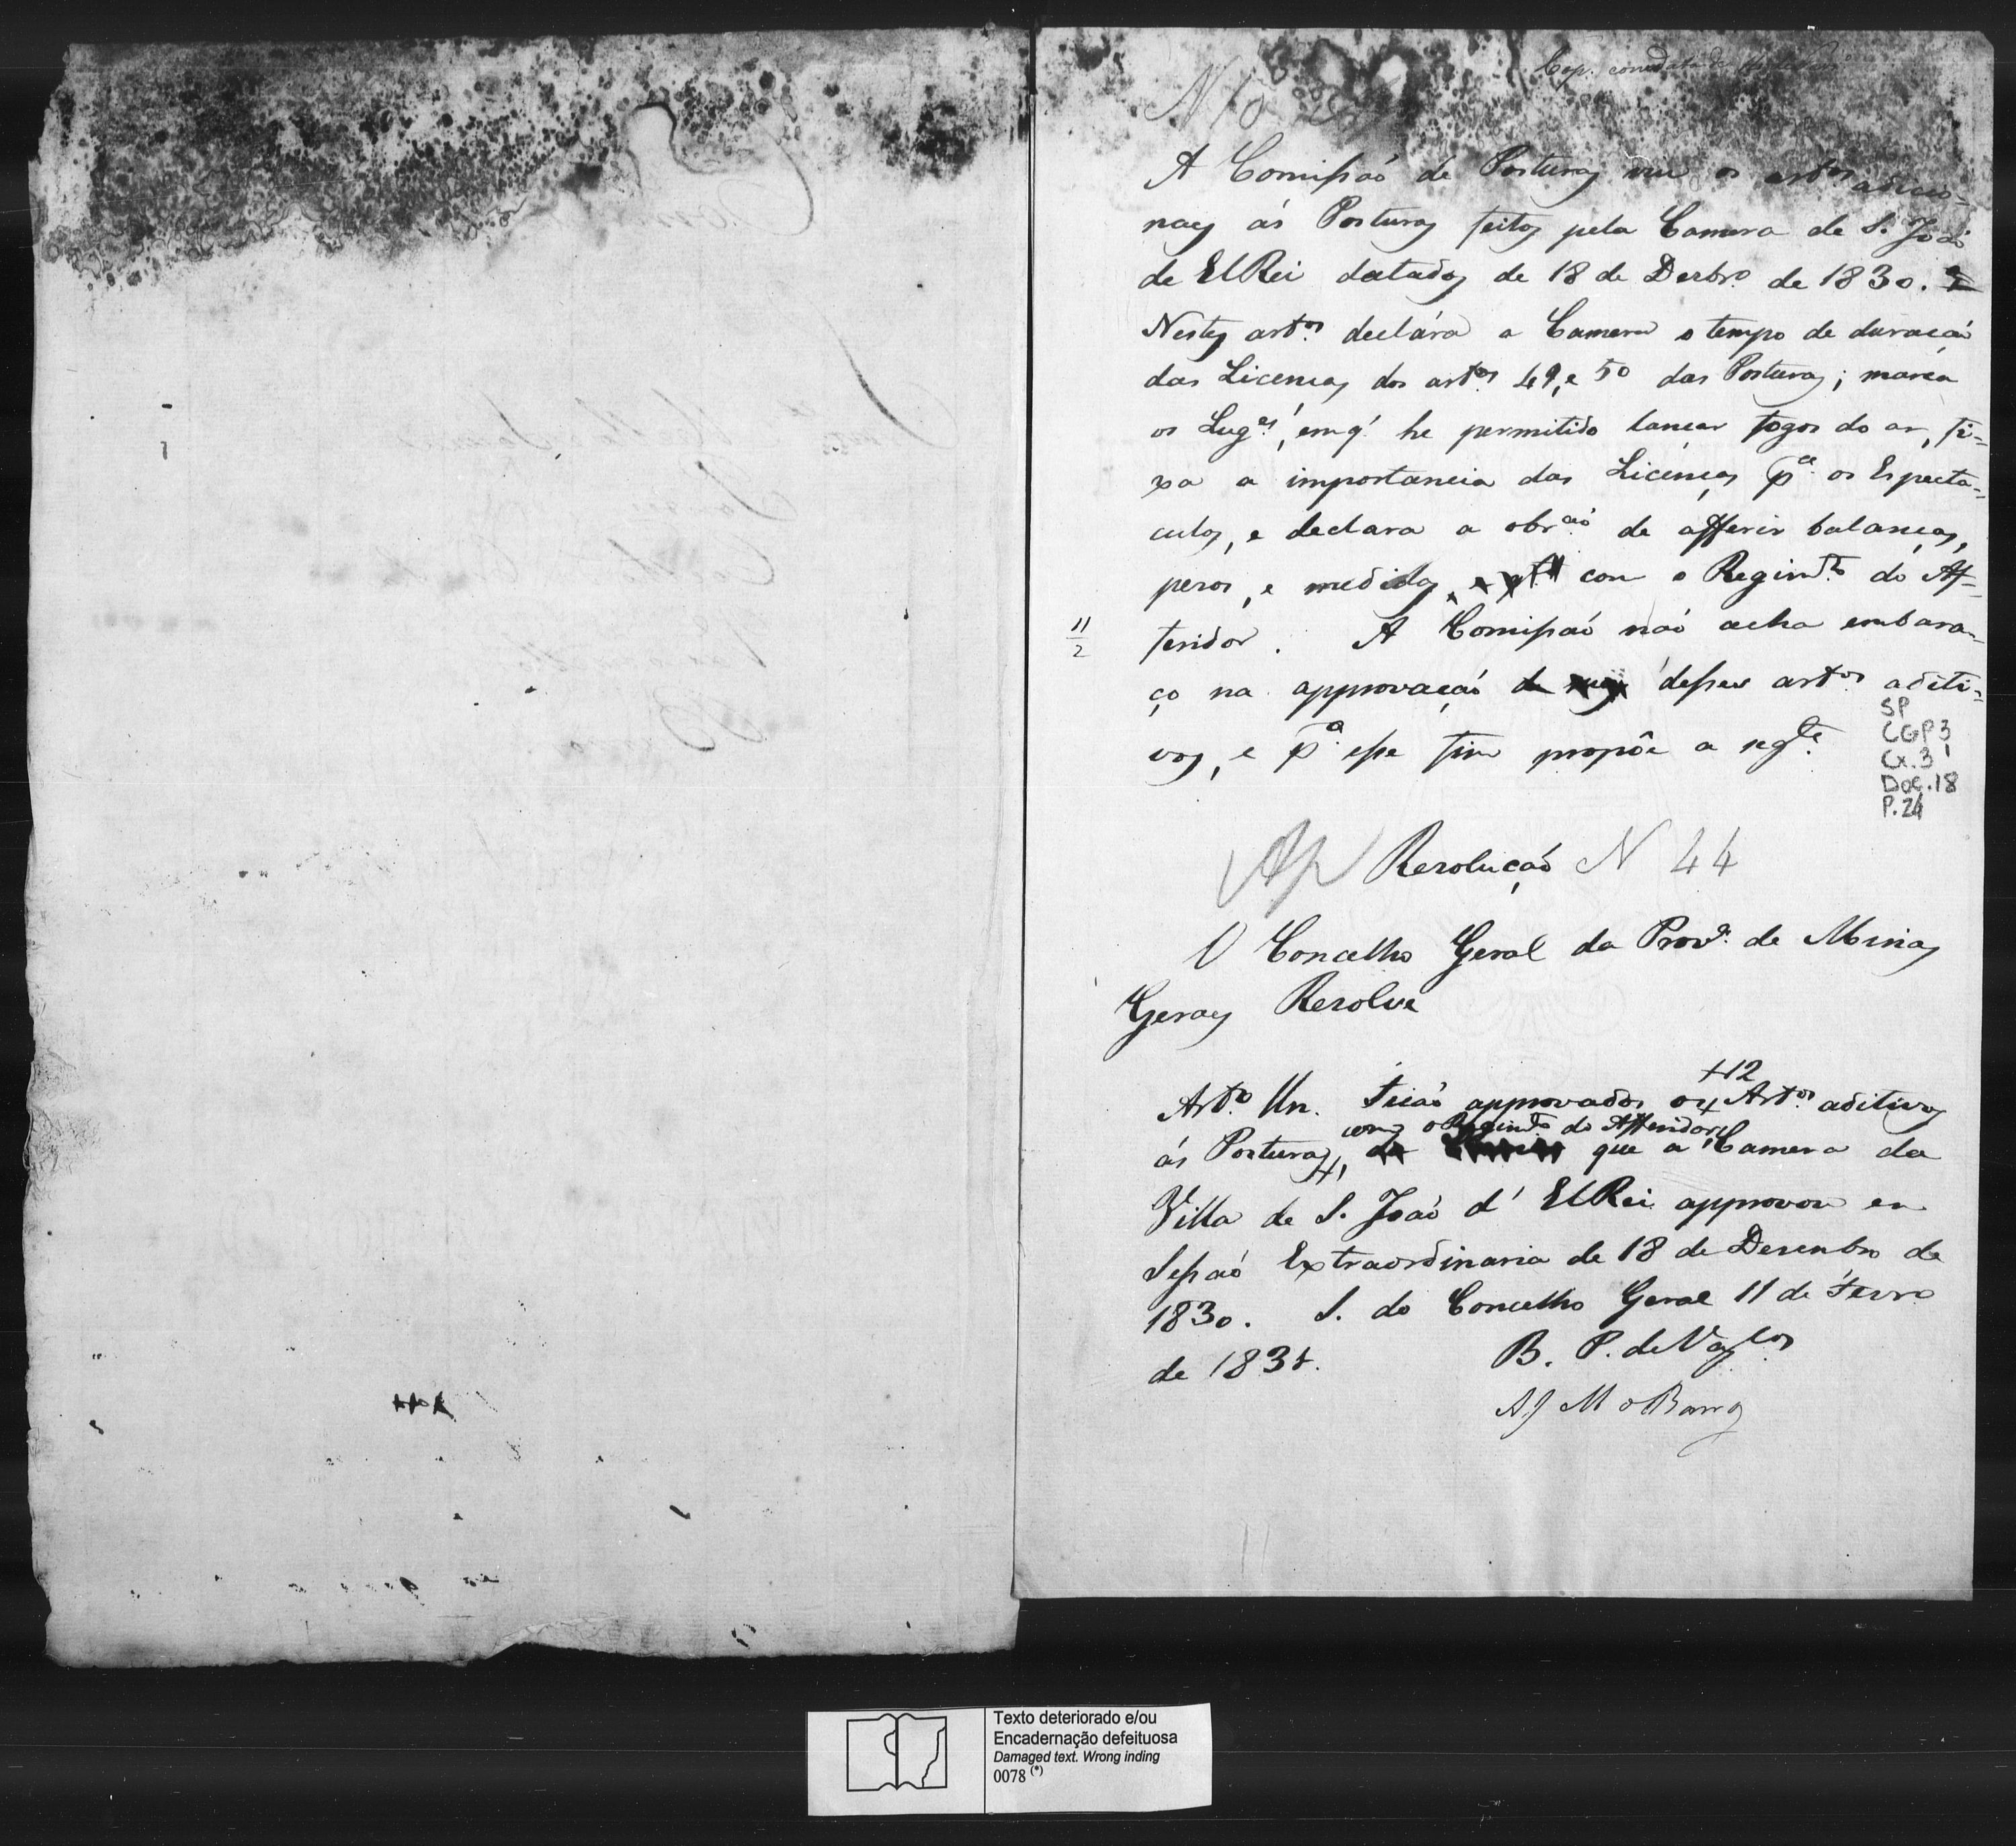 A Comissaõ de Posturas viu os artos adicio-
naes ás Posturas feitos pela Camera de S. Joaõ
de ElRei datados de 18 de Dezbro de 1830.
Nestes artos declára a Camera o tempo de duraçaõ
das Licenças dos artos 49, e 50 das Posturas; marca
os Luges, em q' he permitido lançar fogos do ar, fi-
xa a importancia das Licenças pa os Especta-
culos, e declara a obrçaõ de afferir balanças,
pezos, e medidas com o Regimto do Af-
feridor. A Comissaõ naõ acha embara-
11/2
ço na approvaçaõ desses artos aditi-
vos, e pa esse fim propõe a segte
SP
CGP3
Cx.3
Doc.18
P.24
Ap Resoluçaõ N 44
O Concelho Geral da Prova de Minas
Geraes Resolve
+12
Arto Un. Ficaõ approvados os Artos aditivos
com o Regimto do Afferidor
ás Posturas, que a Camera da
Villa de S. Joaõ d' ElRei approvou em
Sessaõ Extraordinaria de 18 de Dezembro de
1830. S. do Concelho Geral 11 de Fevro
de 1831.
B. P. de Vaslos
Texto deteriorado e/ou
Encadernação defeituosa
Damaged text. Wrong inding
0078 (*)